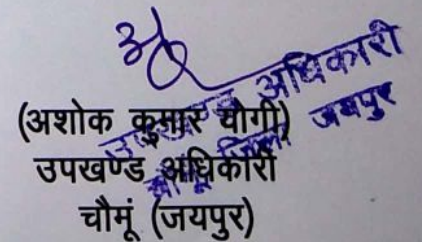 (अशोक कुमार योगी)
उपखण्ड अधिकारी
चौमूं (जयपुर)
उपखण्ड अधिकारी
चौमू जिला जयपुर